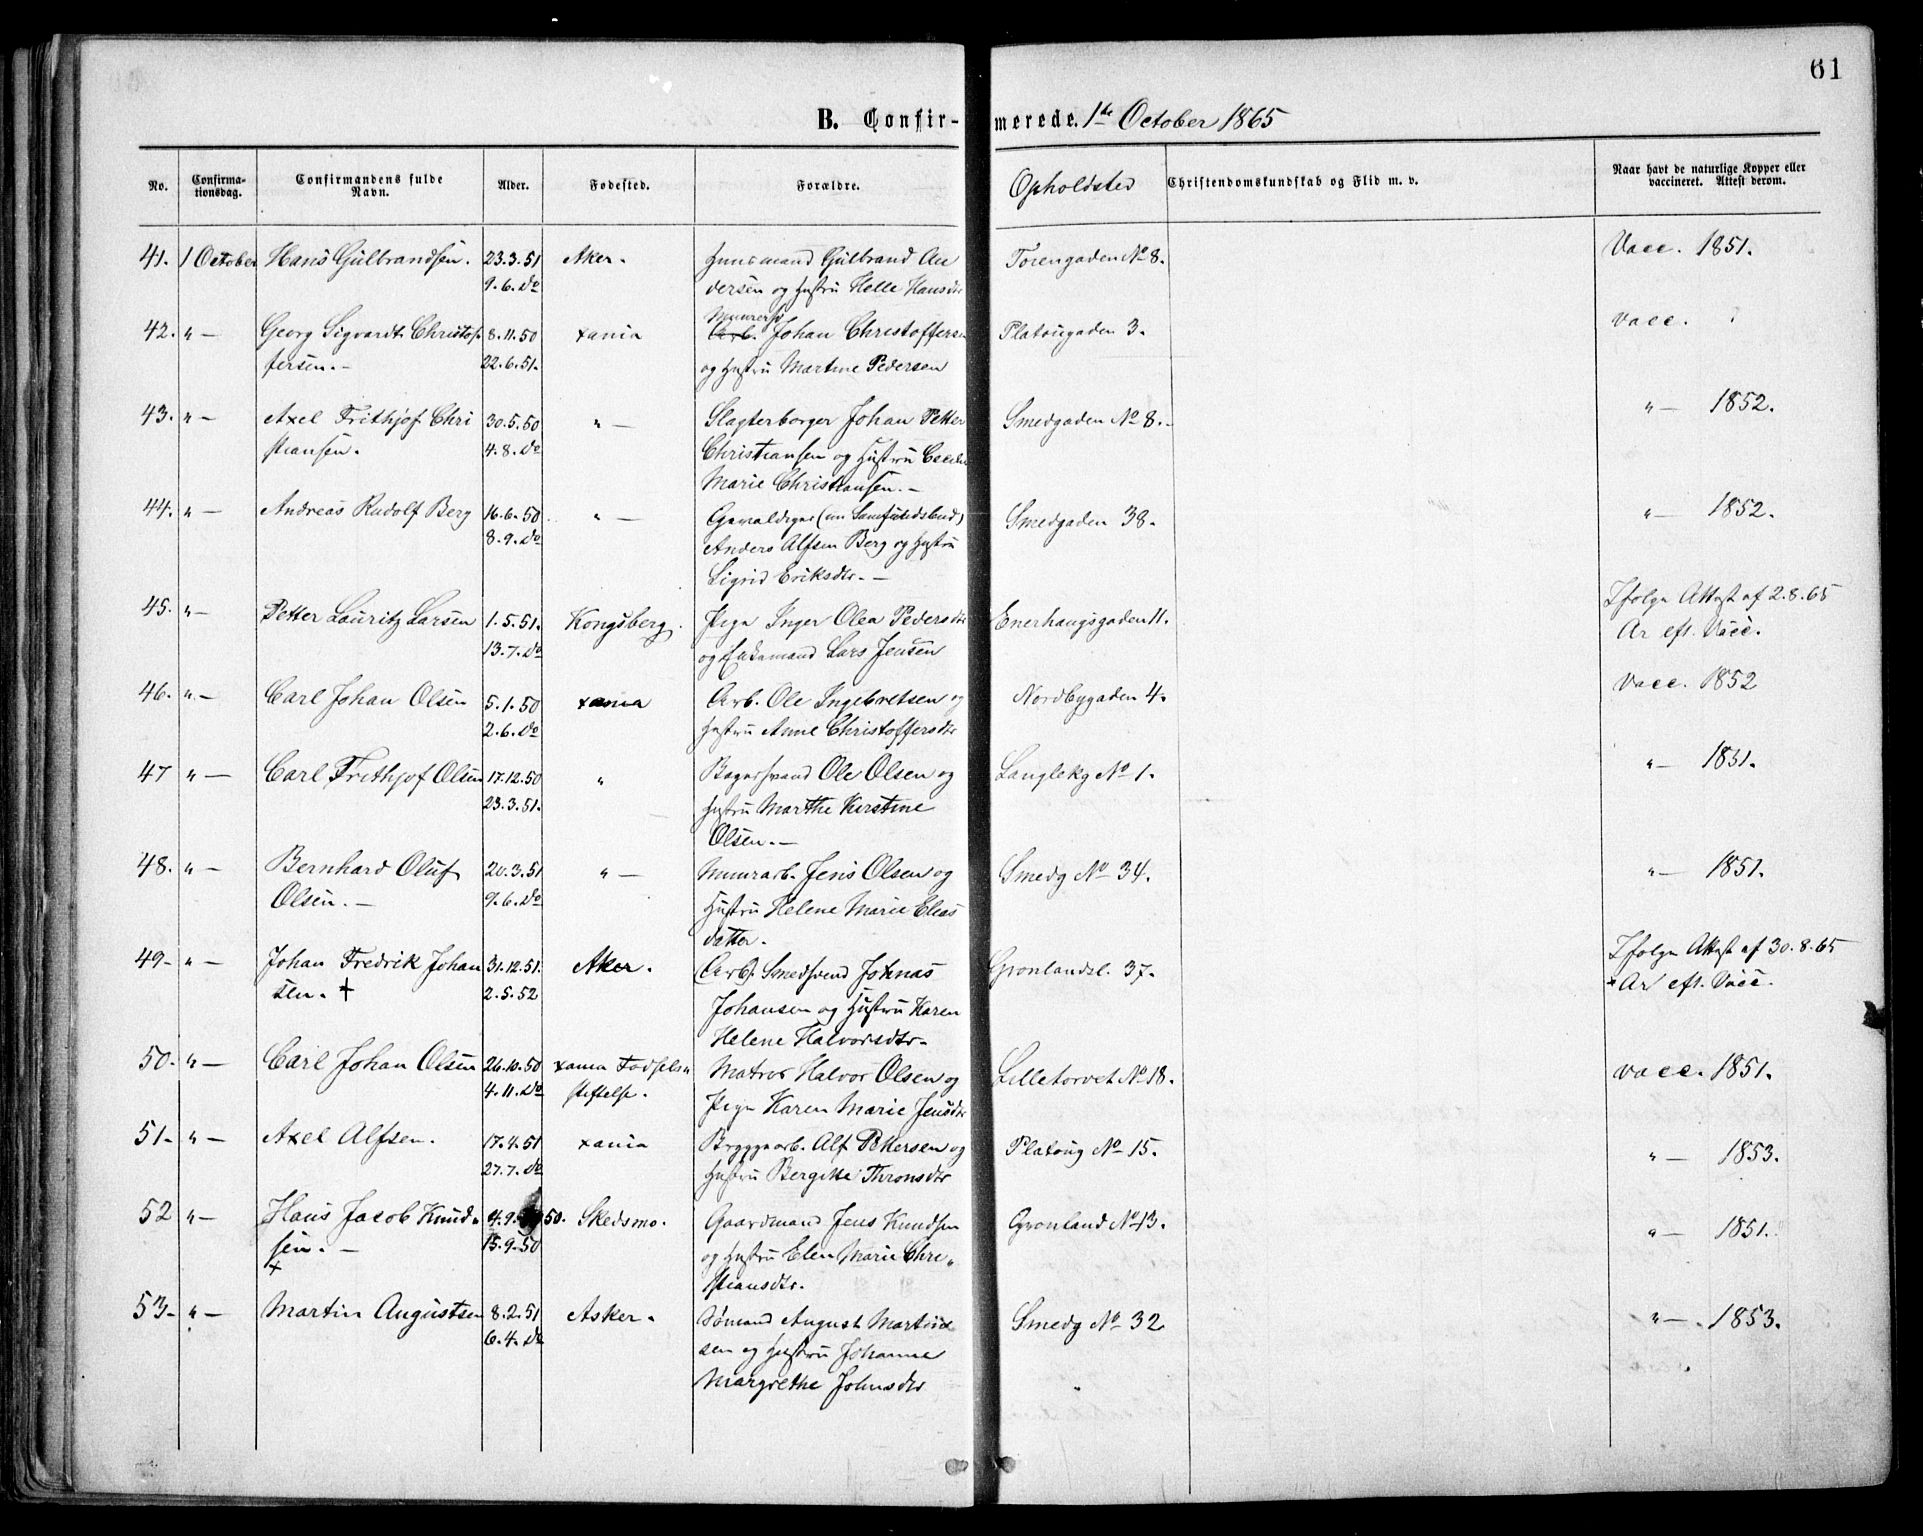 61
B. Confir- merede. 1ste October 1865
No. Confirma-tionsdag. Confirmandens fulde Navn. Alder. Fødested. Forældre. Opholdsted Christendomskundskab og Flid m. v. Naar havt de naturlige Kopper eller vaccineret. Attest derom.
41. 1 October Hans Gulbrandsen. 23.3.51 Aker. Huusmand Gulbrand An Torengaden No 8. Vacc. 1851.
9.6. do dersen og Hustru Helle Hansdtr
Muurersv
42. " — Georg Sigvardt Christof 8.11.50 xania Arb. Johan Christoffersen Platougaden 3. vacc.
fersen. — 22.6.51. og Hustru Martine Pedersen
43. " — Axel Frithjof Chri 30.5.50 " — Slagterborger Johan Petter Smedgaden No 8. " — 1852.
stiansen. 4.8. do Christiansen og Hustru Cecilie
Marie Christiansen. —
44. " — Andreas Rudolf Berg 16.6.50 " — Gevaldiger (nu Samfundsbud) Smedgaden 38. " — 1852.
8.9. do Anders Alfsen Berg og Hustru
Sigrid Eriksdtr. —
45. " — Petter Lauritz Larsen 1.5.51. Kongsberg. Pige Inger Olea Pedersdtr Enerhaugsgaden 11. Ifølge Attest af 2.8.65
13.7. do og Enkemand Lars Jensen Ar eft. Vacc.
46. " — Carl Johan Olsen 5.1.50 xania Arb. Ole Ingebretsen og Nordbygaden 4. Vacc. 1852
2.6. do Hustru Anne Christoffersdtr
47 " — Carl Frithjof Olsen 17.12.50 " Bagersvend Ole Olsen og Langlekg No 1. " — 1851.
23.3.51. Hustru Marthe Kirstine
Olsen. —
48. " — Bernhard Oluf 20.3.51 " — Muurarb. Jens Olsen og Smedg No 34. " — 1851.
Olsen. — 9.6. do Hustru Helene Marie Elias
datter.
49 - " — Johan Fredrik Johan 31.12.51. Aker. Arb. Smedsvend Johnas Grønlandsl. 37. Ifølge Attest af 30.8.65
sen. + 2.5.52 Johansen og Hustru Karen + Ar eft. Vacc.
Helene Halvorsdtr.
50. " — Carl Johan Olsen 26.10.50 xania Fødsels" Matros Halvor Olsen og Lilletorvet No 18. vacc. 1851.
4.11. do stiftelse. Pige Karen Marie Jensdtr
51 - " — Axel Alfsen. 17.4.51 xania Bryggearb. Alf Pettersen og Platoug No 15. " — 1853.
27.7. do Hustru Bergitte Thronsdtr
52 " — Hans Jacob Knud" 4.9. 50. Skedsmo. Gaardmand Jens Knudsen Grønland No 13. " — 1851.
sen. — 15.9.50 og Hustru Elen Marie Chri"
+ stiansdtr.
53 - " — Martin Augustsen 8.2.51 Asker. Sømand August Martin Smedg No 32 " — 1853.
6.4. do sen og Hustru Johanne
Margrethe Johnsdtr